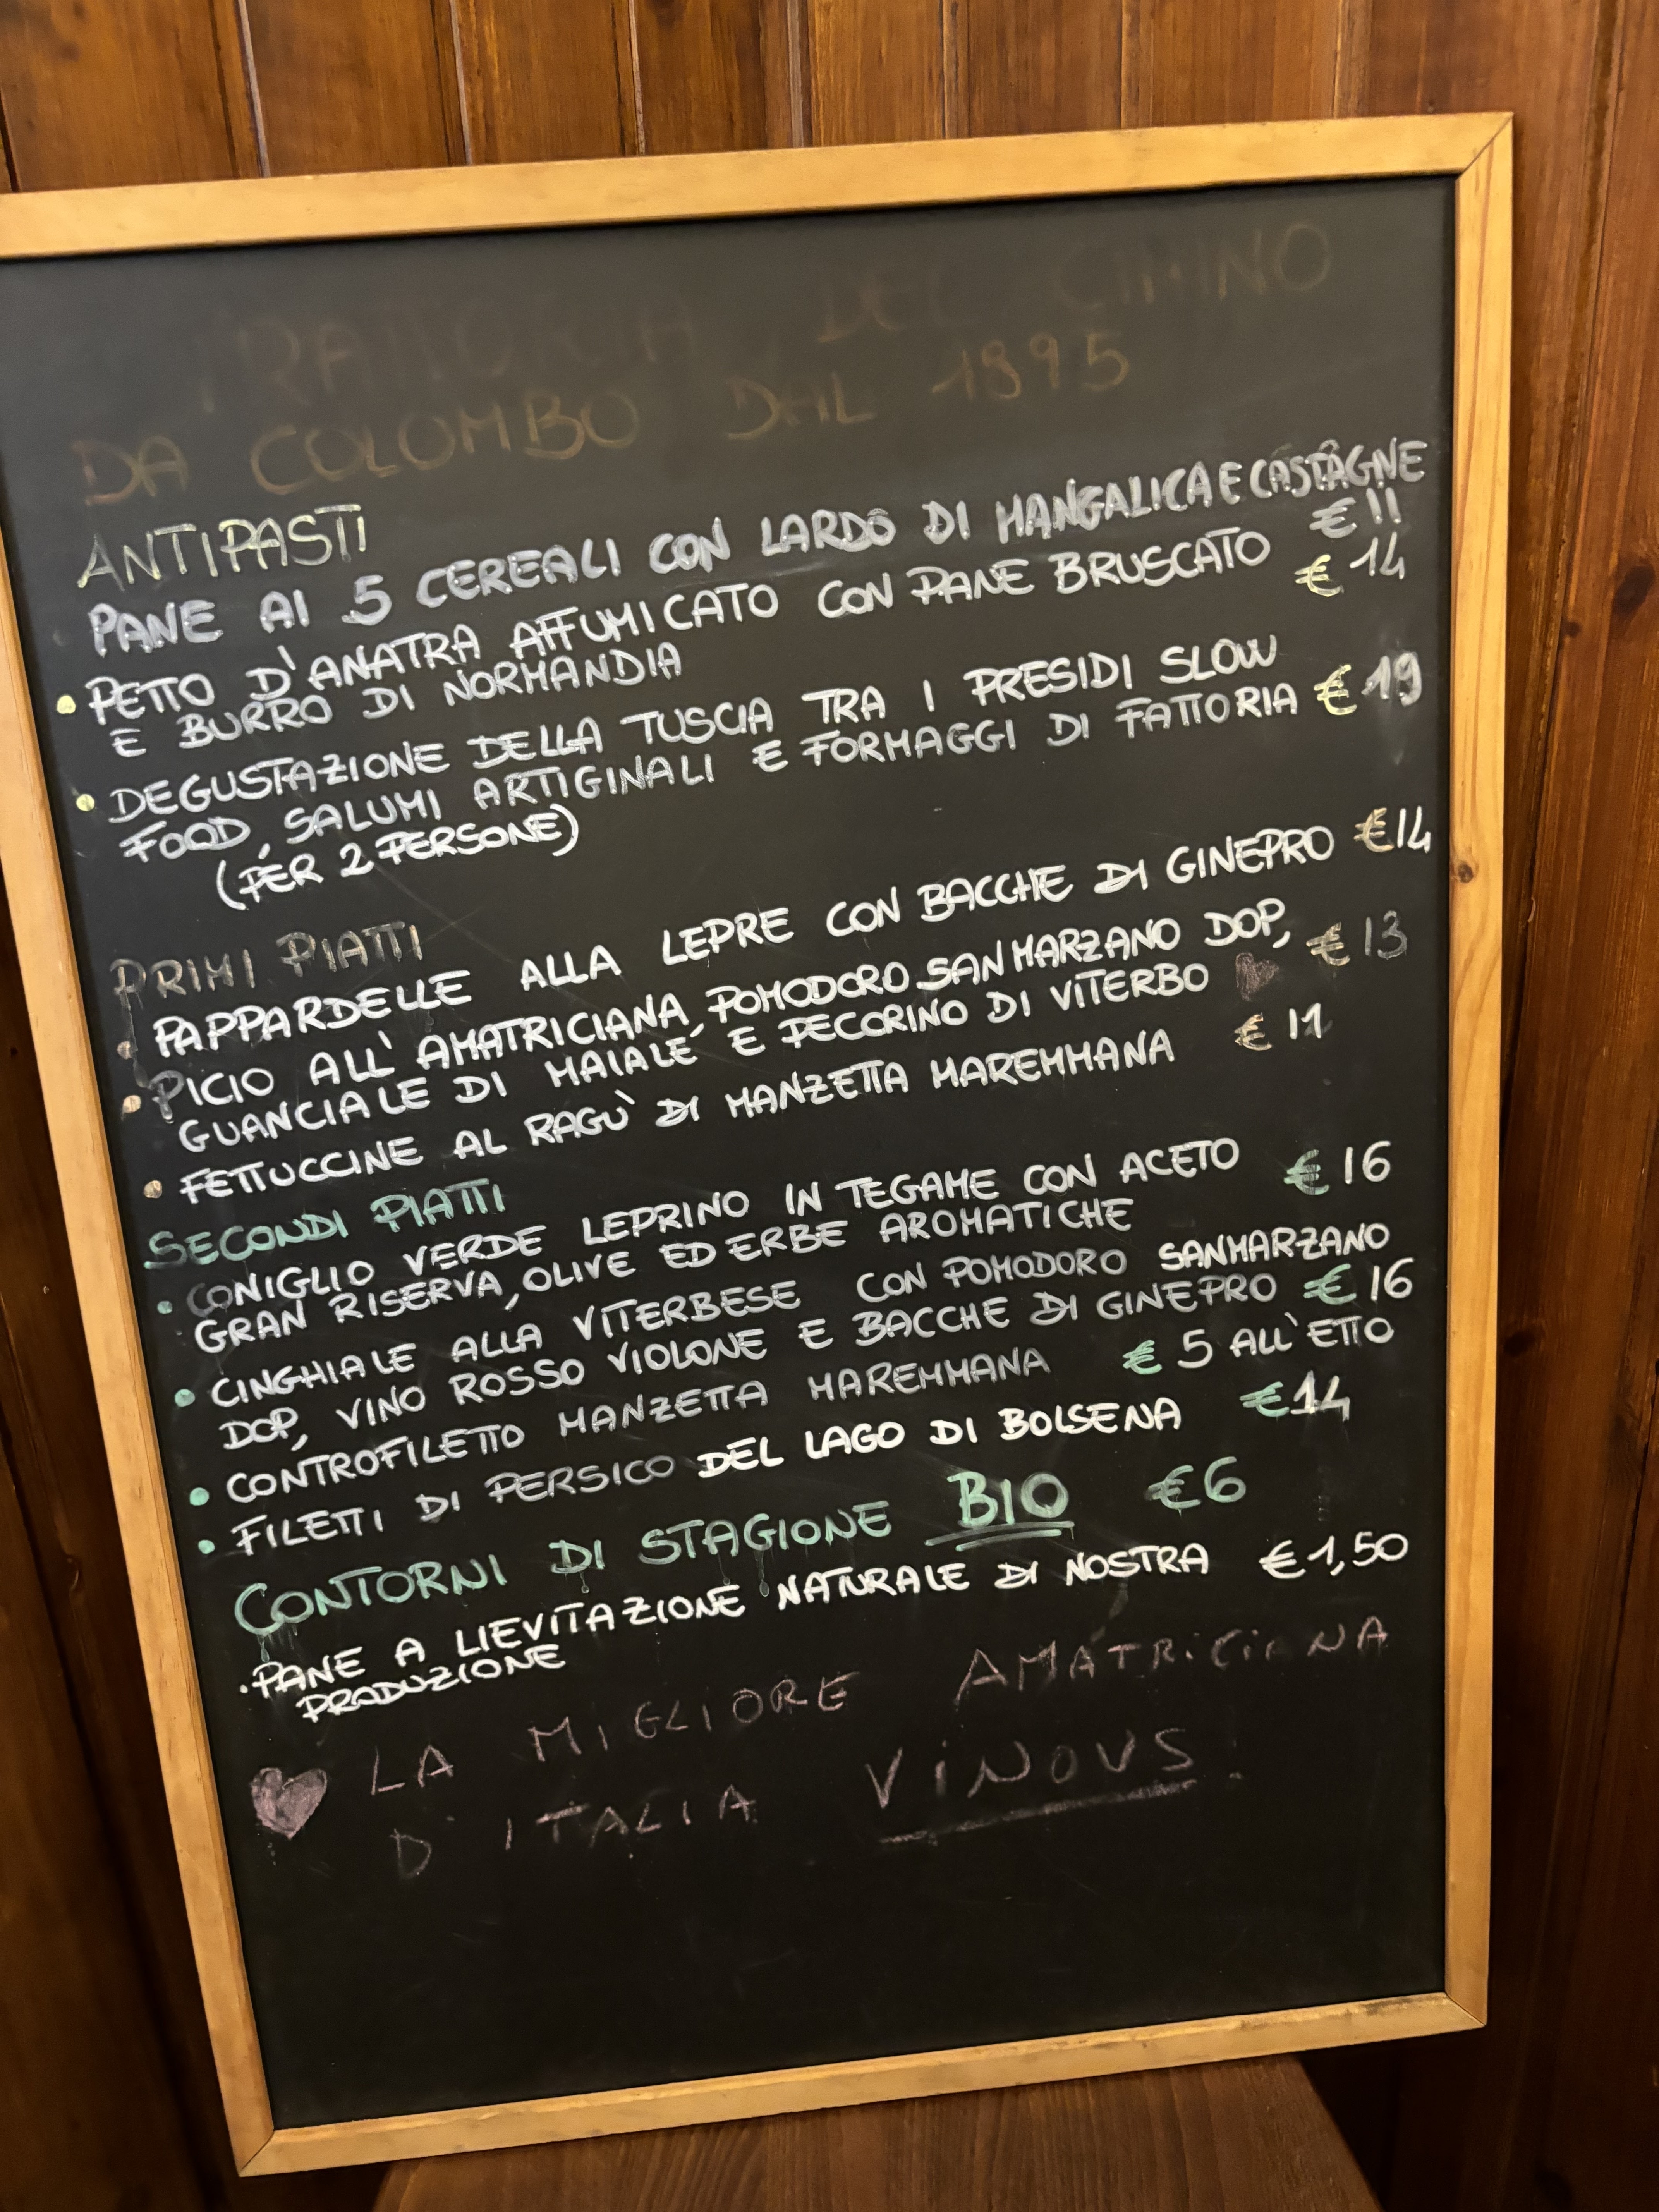 TRATTORIA DEL CIMINO
DA COLOMBO DAL 1895
ANTIPASTI
PANE AI 5 CEREALI CON LARDO DI MANGALICA E CASTAGNE
€ 11
• PETTO D'ANATRA AFFUMICATO CON PANE BRUSCATO € 14
E BURRO DI NORMANDIA
• DEGUSTAZIONE DELLA TUSCIA TRA I PRESIDI SLOW
FOOD, SALUMI ARTIGINALI E FORMAGGI DI FATTORIA € 19
(PER 2 PERSONE)
PRIMI PIATTI
• PAPPARDELLE ALLA LEPRE CON BACCHE DI GINEPRO € 14
• PICIO ALL'AMATRICIANA, POMODORO SAN MARZANO DOP, € 13
GUANCIALE DI MAIALE E PECORINO DI VITERBO
• FETTUCCINE AL RAGÙ DI MANZETTA MAREMMANA € 11
SECONDI PIATTI
• CONIGLIO VERDE LEPRINO IN TEGAME CON ACETO € 16
GRAN RISERVA, OLIVE ED ERBE AROMATICHE
• CINGHIALE ALLA VITERBESE CON POMODORO SANMARZANO
DOP, VINO ROSSO VIOLONE E BACCHE DI GINEPRO € 16
• CONTROFILETTO MANZETTA MAREMMANA € 5 ALL'ETTO
• FILETTI DI PERSICO DEL LAGO DI BOLSENA € 14
CONTORNI DI STAGIONE BIO € 6
• PANE A LIEVITAZIONE NATURALE DI NOSTRA € 1,50
PRODUZIONE
LA MIGLIORE AMATRICIANA
D'ITALIA VINOUS!